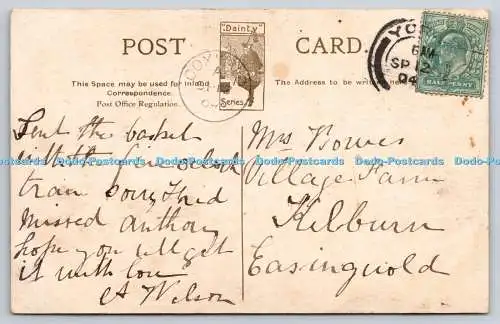 POST CARD.
"Dainty"
Series
This Space may be used for Inland
Correspondence.
Post Office Regulation.
The Address to be written here.
YO
6 AM
SP 12
04
HALFPENNY
Sent the basket
with five o'clock
train sorry I had
missed Anthony
hope you will get
it with love
A Wilson
Mrs Bowes
Village Farm
Kilburn
Easingwold
Dado-Postcards Dado-Postcards Dado-Postcards Dado-Postcards Dado-Postcards